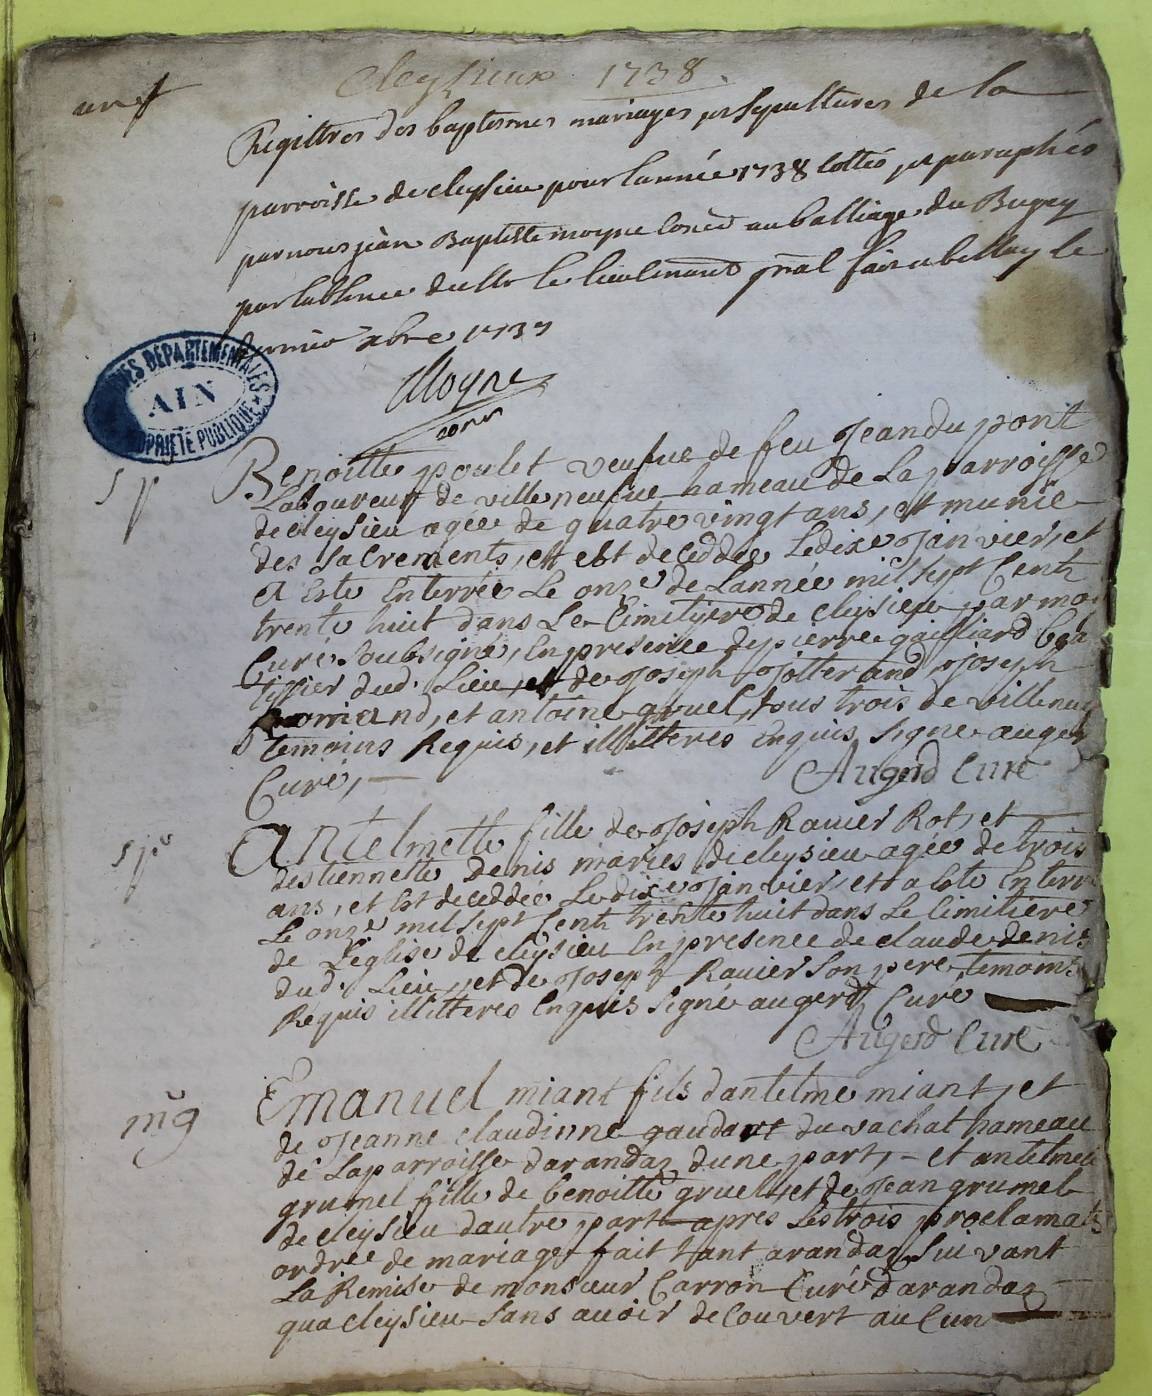 Cleysieux 1738.
Registres des baptesmes mariages et sepultures de la
parroisse de cleysieu pour lannée 1738 cottés et paraphés
par nous jean Baptiste moyne au balliage du Bugey
par labsence de le lieutenant gnal fait a belley le
xbre 1737
Moyne
ARCHIVES DEPARTEMENTALES
AIN
PROPRIETE PUBLIQUE
sp
Benoitte poulet veufue de feu Jean du pont
Laboureur de villeneufue hameau de La parroisse
de cleysieu agée de quatre vingt ans, et munie
des sacrements, est decedée Le dixe Janvier, et
a este enterrée Le onze de L'année mil sept Cent
trente huit dans Le Cimitiere de cleysieu par moy
Curé soubsigné, En presence de pierre gailliard
dud. Lieu, et de Joseph Jotterand, Joseph
et antoine gruel, tous trois de villeneu
temoins Requis, et illitteres Enquis signe augerd
Curé,
Augerd Curé
sp
Antelmette fille de Joseph Rauier Rot, et
destiennette denis mariés de cleysieu agée de trois
ans, et Est decedée Le dixe Janvier, et a este Enterr
Le onze mil sept Cent trente huit dans Le Cimitiere
de L'eglise de cleysieu En presence de claude denis
dud. Lieu, et de Joseph Rauier son pere, temoins
Requis illitteres Enquis signé augerd Curé
Augerd Curé
mg
Emanuel miant fils dantelme miant, et
de Jeanne claudinne gaudart du vachat hameau
de La parroisse darandaz dune part, et antelmette
grumel fille de benoitte gruel, et de Jean grumel
de cleysieu dautre part apres Les trois proclamat
ordre de mariage fait tant arandaz suivant
La Remise de monsieur Carron Curé darandaz
qua cleysieu sans auoir decouvert aucun